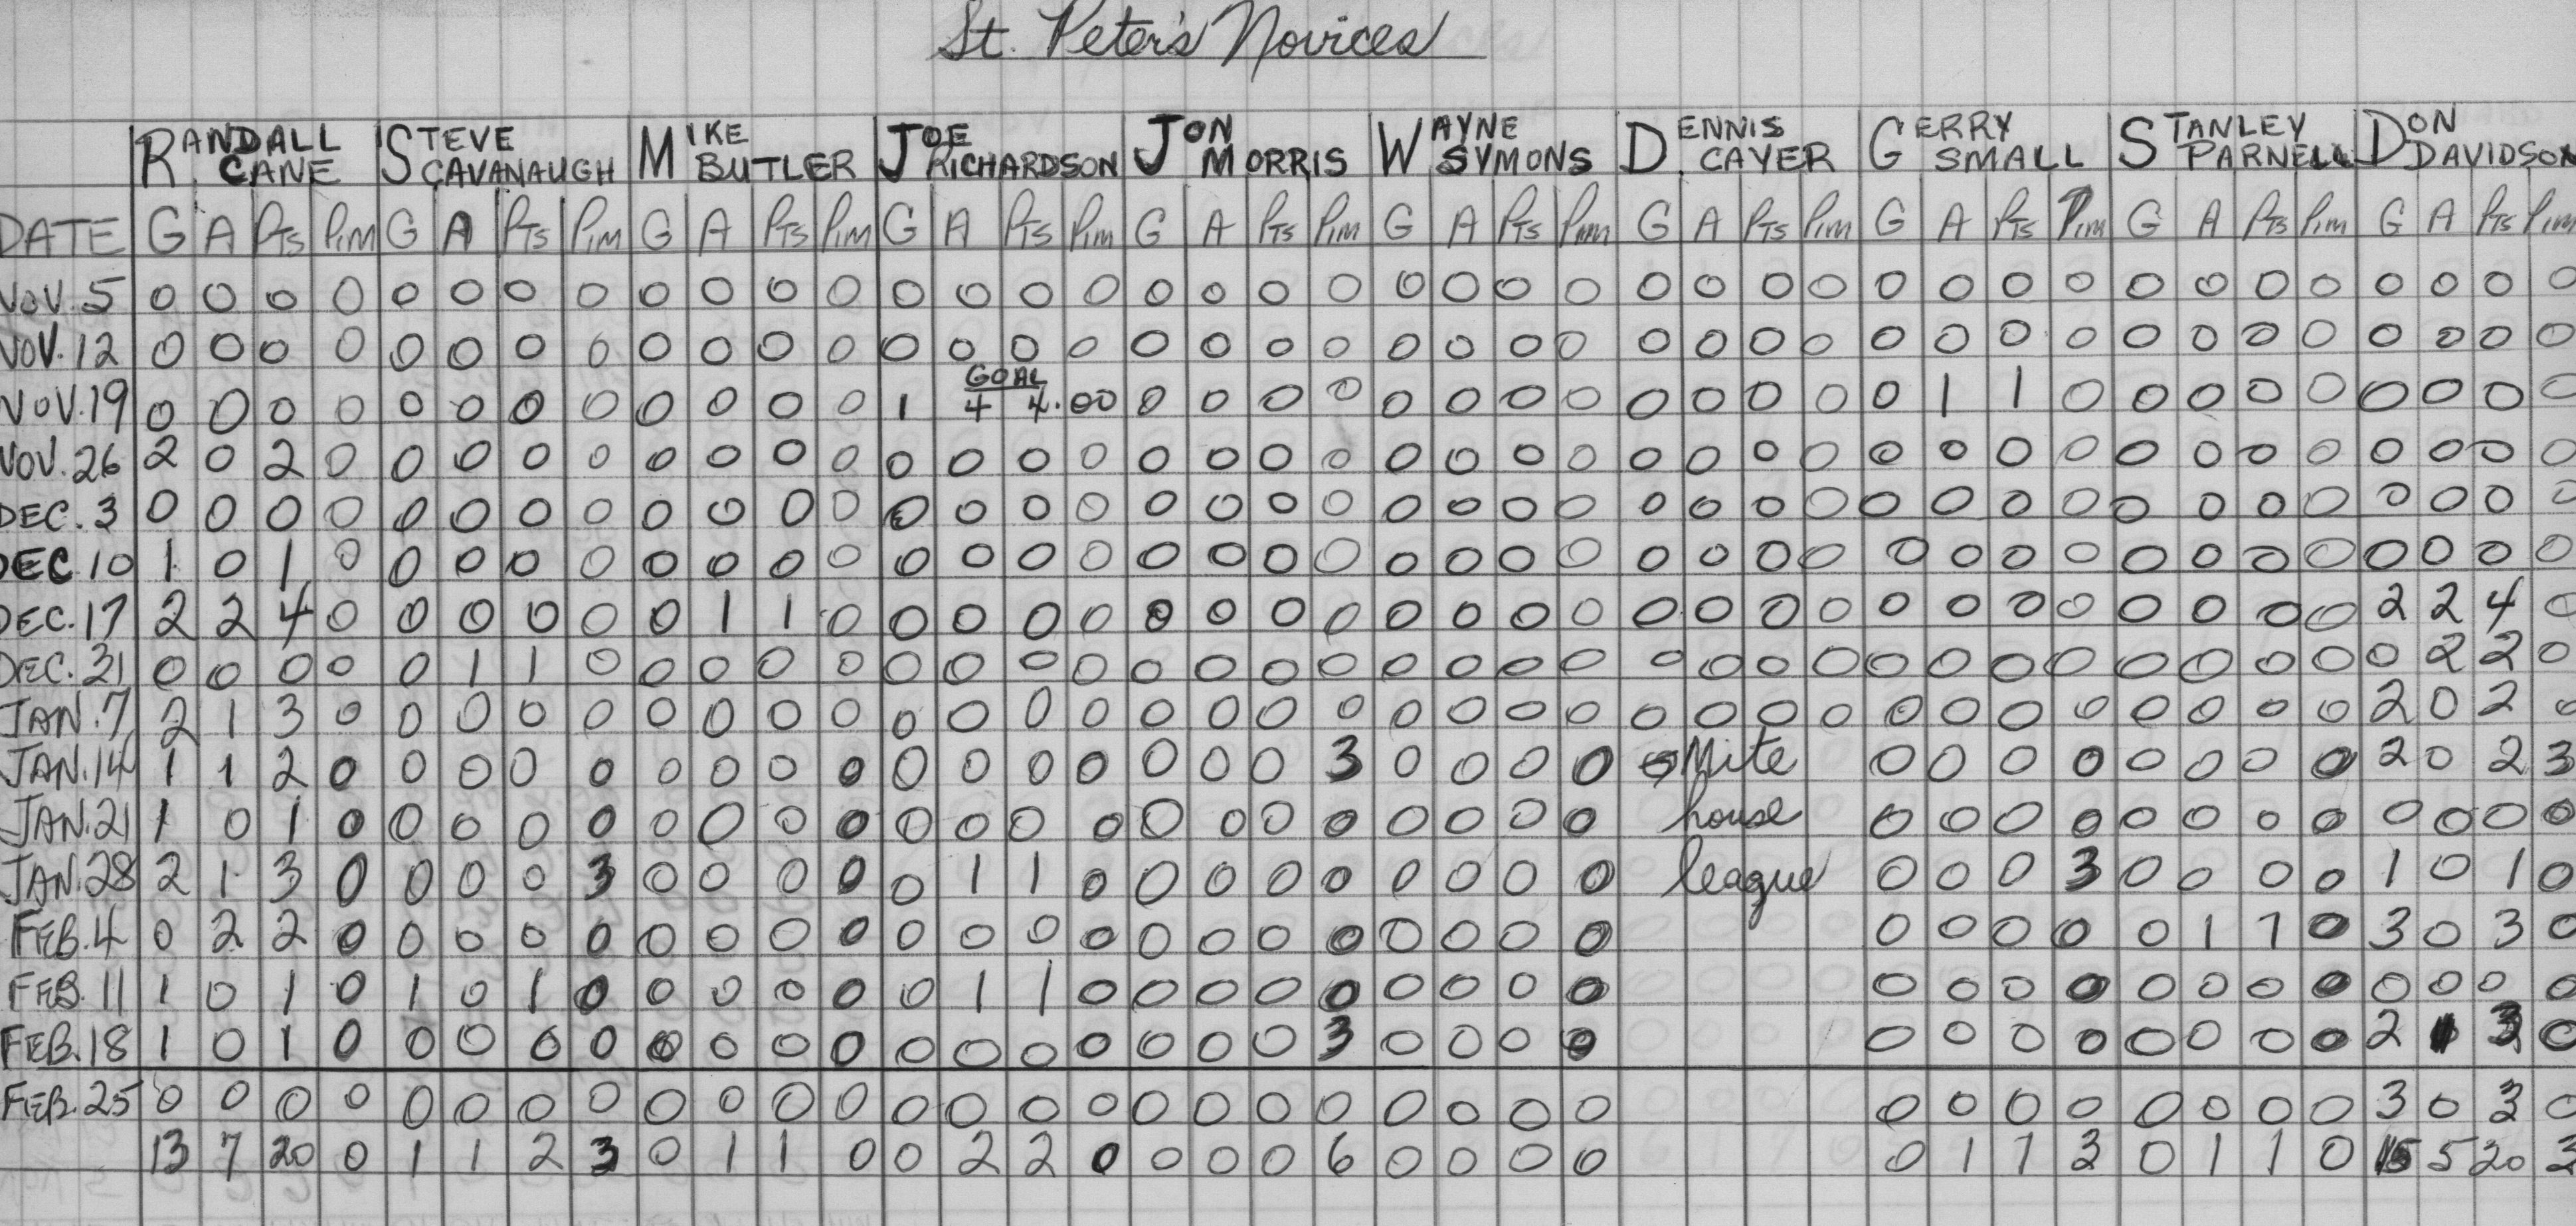 St. Peter's Novices
RANDALL CANE STEVE CAVANAUGH MIKE BUTLER JOE RICHARDSON JON MORRIS WAYNE SYMONS DENNIS CAYER GERRY SMALL STANLEY PARNELL DON DAVIDSON
DATE G A PTS PIM G A PTS PIM G A PTS PIM G A PTS PIM G A PTS PIM G A PTS PIM G A PTS PIM G A PTS PIM G A PTS PIM G A PTS PIM
NOV. 5 0 0 0 0 0 0 0 0 0 0 0 0 0 0 0 0 0 0 0 0 0 0 0 0 0 0 0 0 0 0 0 0 0 0 0 0 0 0 0 0
NOV. 12 0 0 0 0 0 0 0 0 0 0 0 0 0 0 0 0 0 0 0 0 0 0 0 0 0 0 0 0 0 0 0 0 0 0 0 0 0 0 0 0
GOAL
NOV. 19 0 0 0 0 0 0 0 0 0 0 0 0 1 4 4.00 0 0 0 0 0 0 0 0 0 0 0 0 0 1 1 0 0 0 0 0 0 0 0 0
NOV. 26 2 0 2 0 0 0 0 0 0 0 0 0 0 0 0 0 0 0 0 0 0 0 0 0 0 0 0 0 0 0 0 0 0 0 0 0 0 0 0 0
DEC. 3 0 0 0 0 0 0 0 0 0 0 0 0 0 0 0 0 0 0 0 0 0 0 0 0 0 0 0 0 0 0 0 0 0 0 0 0 0 0 0 0
DEC 10 1 0 1 0 0 0 0 0 0 0 0 0 0 0 0 0 0 0 0 0 0 0 0 0 0 0 0 0 0 0 0 0 0 0 0 0 0 0 0 0
DEC. 17 2 2 4 0 0 0 0 0 0 1 1 0 0 0 0 0 0 0 0 0 0 0 0 0 0 0 0 0 0 0 0 0 0 0 0 0 2 2 4 0
DEC. 31 0 0 0 0 0 1 1 0 0 0 0 0 0 0 0 0 0 0 0 0 0 0 0 0 0 0 0 0 0 0 0 0 0 0 0 0 0 2 2 0
JAN. 7 2 1 3 0 0 0 0 0 0 0 0 0 0 0 0 0 0 0 0 0 0 0 0 0 0 0 0 0 0 0 0 0 0 0 0 0 2 0 2 0
JAN. 14 1 1 2 0 0 0 0 0 0 0 0 0 0 0 0 0 0 0 0 3 0 0 0 0 Mite 0 0 0 0 0 0 0 0 2 0 2 3
JAN. 21 1 0 1 0 0 0 0 0 0 0 0 0 0 0 0 0 0 0 0 0 0 0 0 0 house 0 0 0 0 0 0 0 0 0 0 0 0
JAN. 28 2 1 3 0 0 0 0 3 0 0 0 0 0 1 1 0 0 0 0 0 0 0 0 0 league 0 0 0 3 0 0 0 0 1 0 1 0
FEB. 4 0 2 2 0 0 0 0 0 0 0 0 0 0 0 0 0 0 0 0 0 0 0 0 0 0 0 0 0 0 1 1 0 3 0 3 0
FEB. 11 1 0 1 0 1 0 1 0 0 0 0 0 0 1 1 0 0 0 0 0 0 0 0 0 0 0 0 0 0 0 0 0 0 0 0 0
FEB. 18 1 0 1 0 0 0 0 0 0 0 0 0 0 0 0 0 0 0 0 3 0 0 0 0 0 0 0 0 0 0 0 0 2 1 3 0
FEB. 25 0 0 0 0 0 0 0 0 0 0 0 0 0 0 0 0 0 0 0 0 0 0 0 0 0 0 0 0 0 0 0 0 3 0 3 0
13 7 20 0 1 1 2 3 0 1 1 0 0 2 2 0 0 0 0 6 0 0 0 0 0 1 1 3 0 1 1 0 15 5 20 3